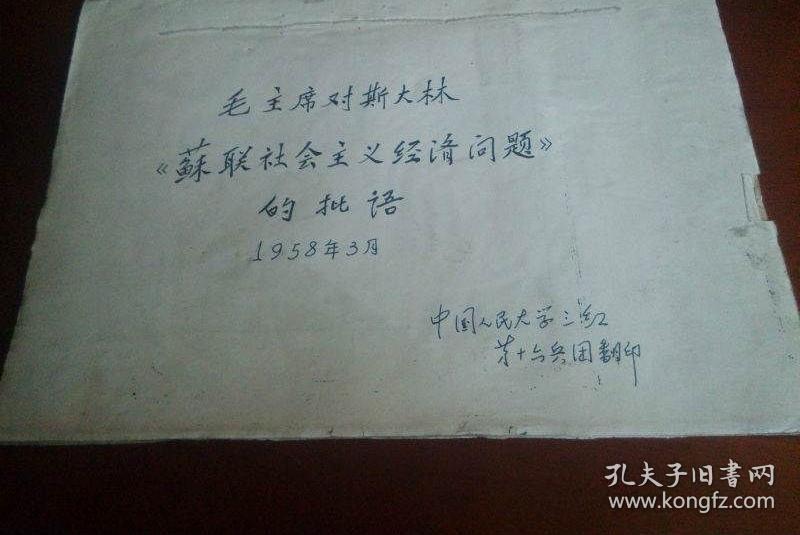 毛主席对斯大林
《蘇联社会主义经济问题》
的批语
1958年3月
中国人民大学三红
第十六兵团翻印
孔夫子旧书网
www.kongfz.com